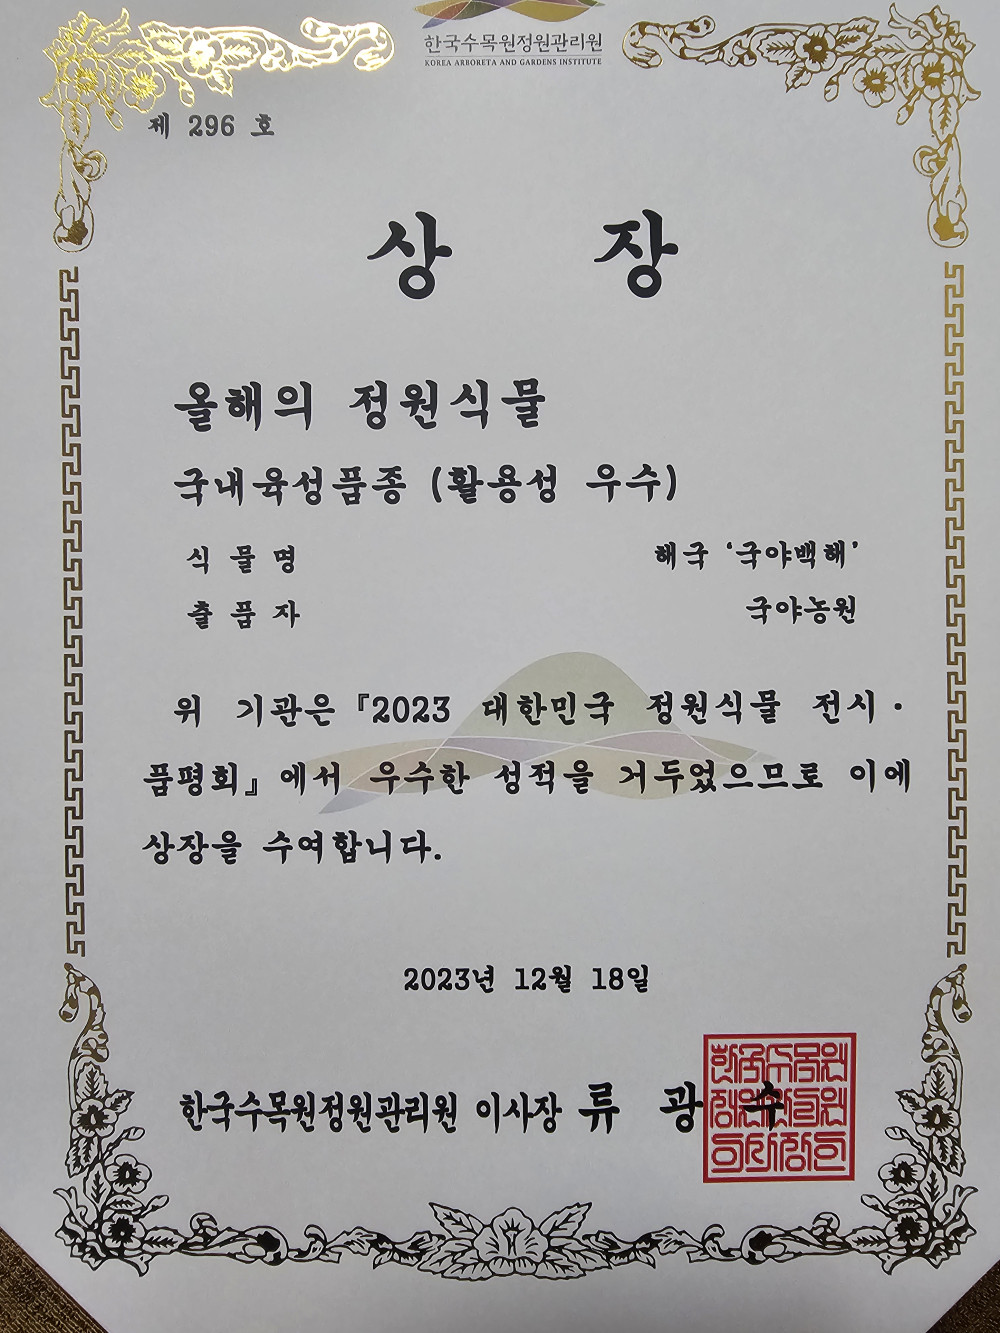 한국수목원정원관리원
KOREA ARBORETA AND GARDENS INSTITUTE
제 296 호
상 장
올해의 정원식물
국내육성품종 (활용성 우수)
식 물 명 해국 ‘국야백해’
출 품 자 국야농원
위 기관은『2023 대한민국 정원식물 전시·
품평회』에서 우수한 성적을 거두었으므로 이에
상장을 수여합니다.
2023년 12월 18일
한국수목원정원관리원 이사장 류 광 수
한국수목원
정원관리원
이사장의